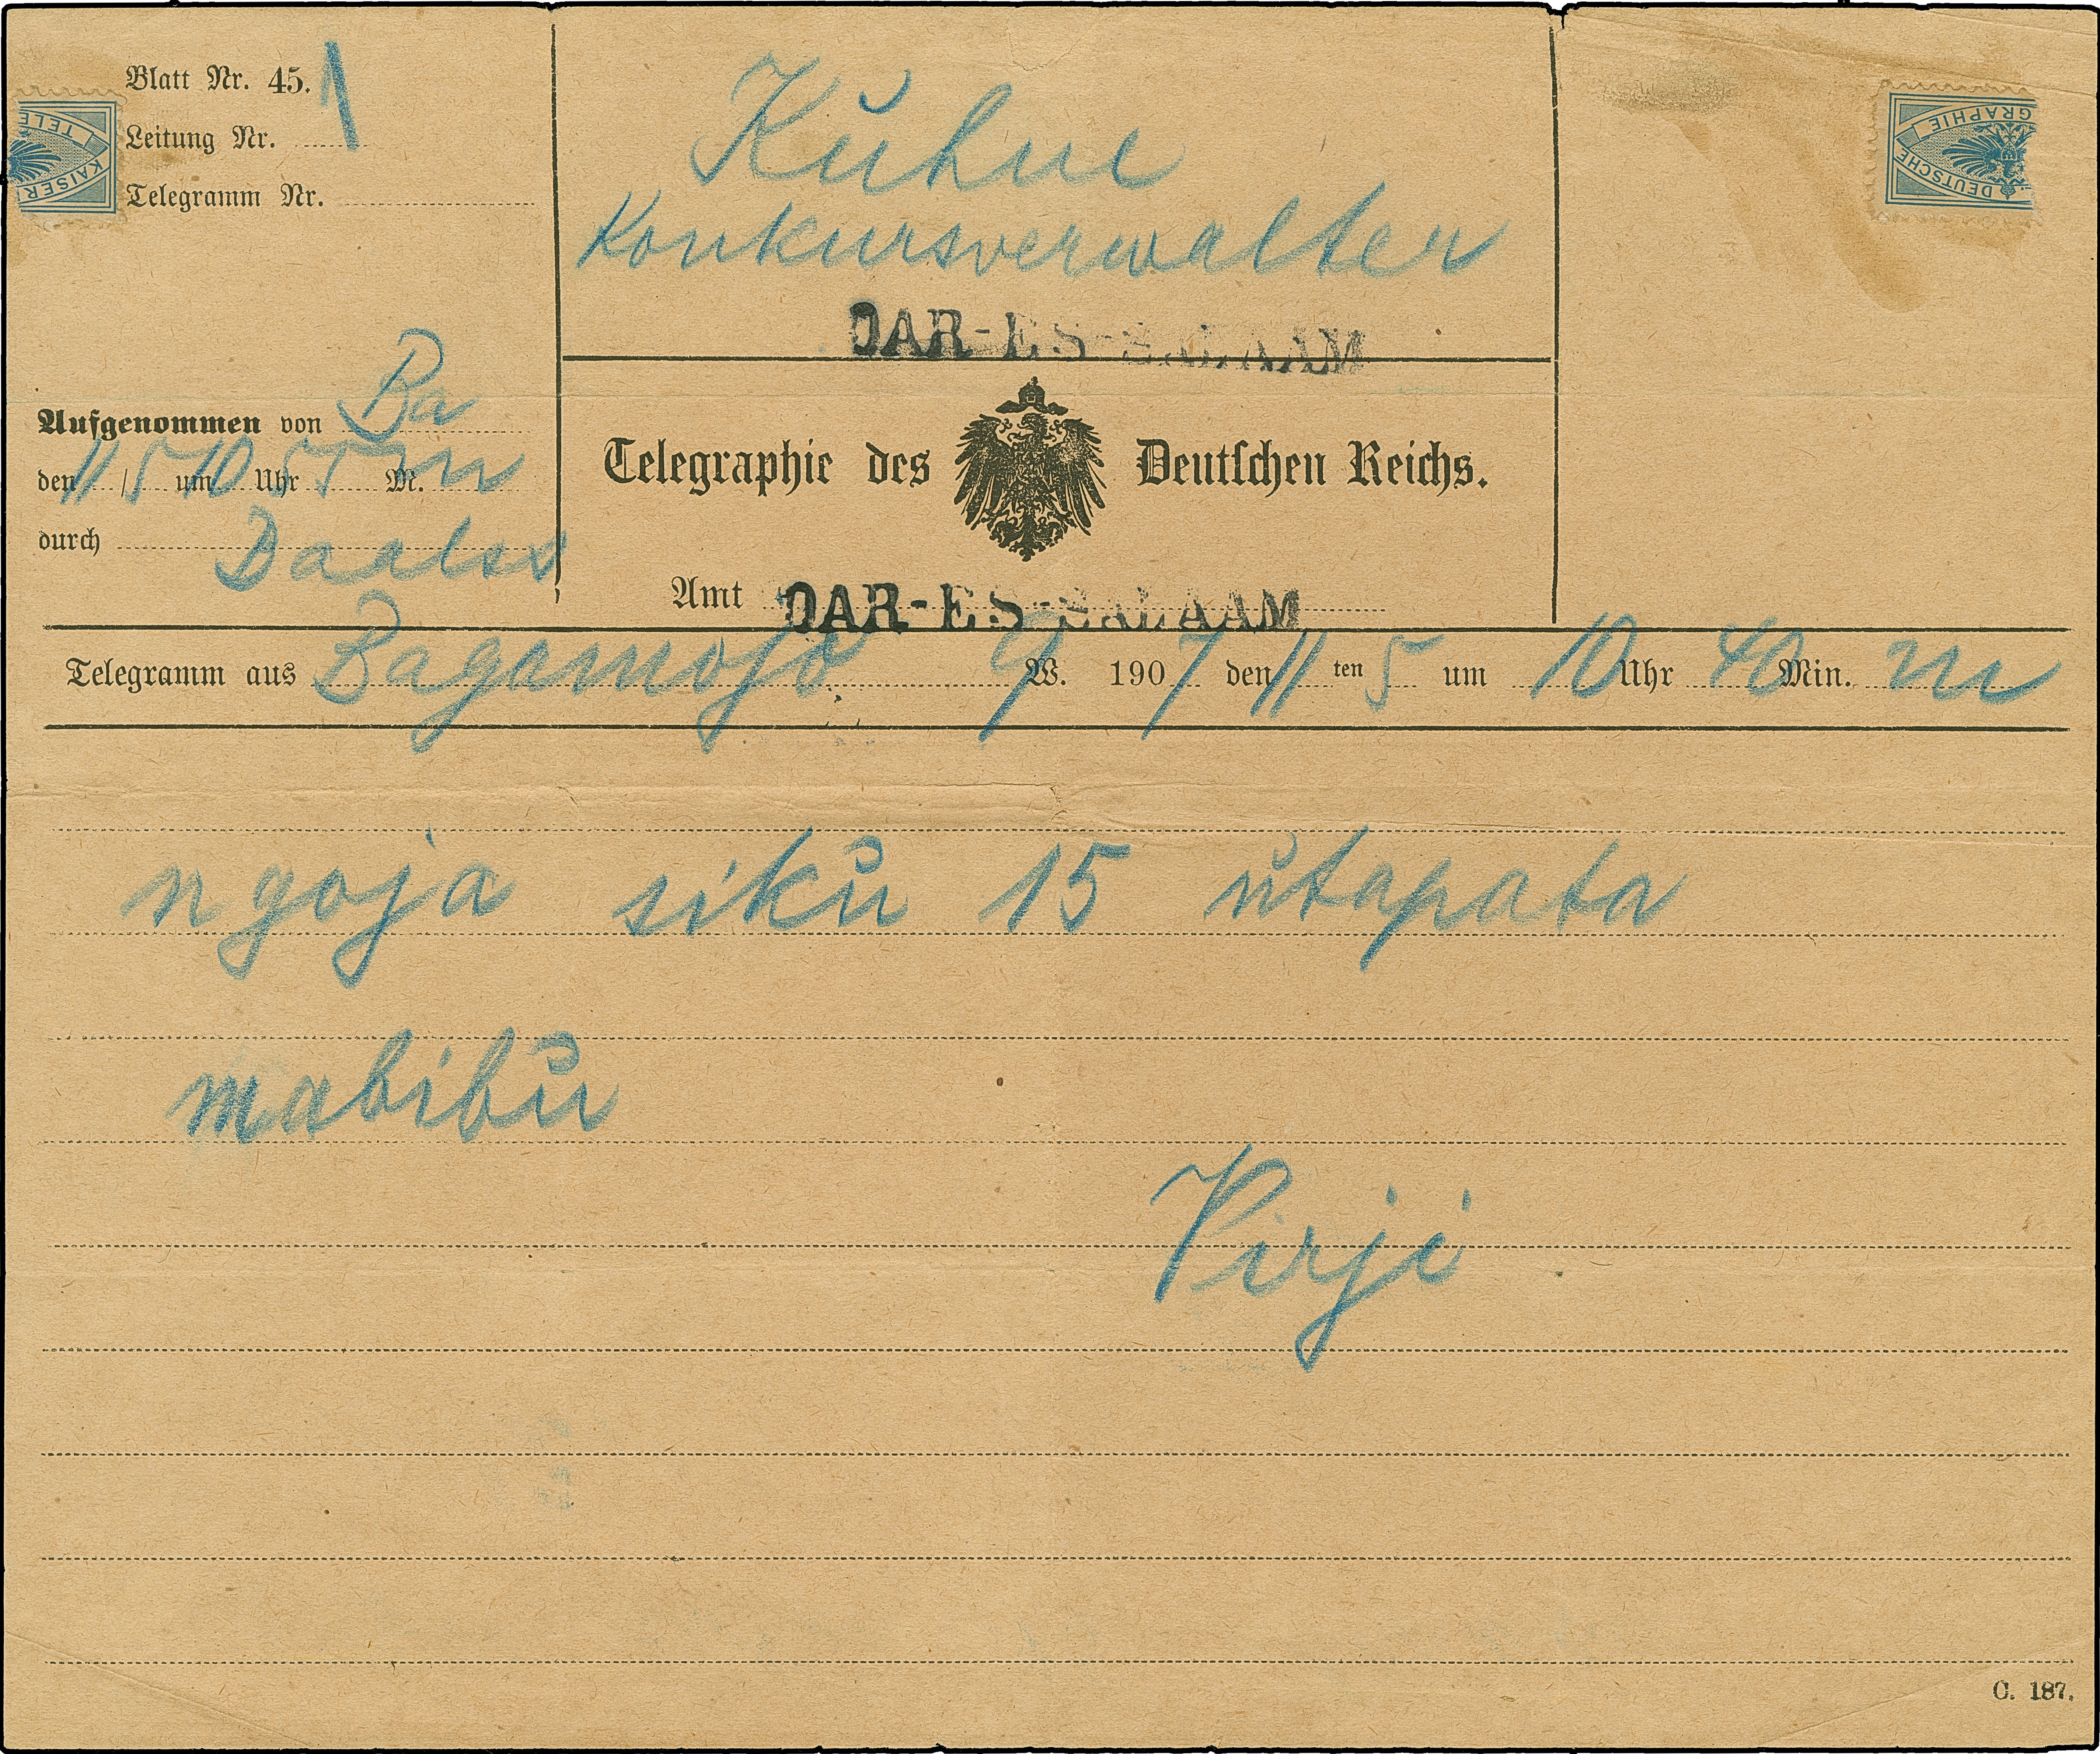 Blatt Nr. 45. 1
Leitung Nr.
Telegramm Nr.
TELE
KAISER
Kühne
Konkursverwalter
DAR-ES-SALAAM
DEUTSCHE
GRAPHIE
Aufgenommen von Ba
den 11/5 um 10 Uhr 55 M. m
durch
Telegraphie des Deutschen Reichs.
Amt DAR-ES-SALAAM
Telegramm aus Bagamojo 9 W. 1907 den 11ten 5 um 10 Uhr 40 Min. m
ngoja siku 15 utapata
mabibu
Virji
C. 187.